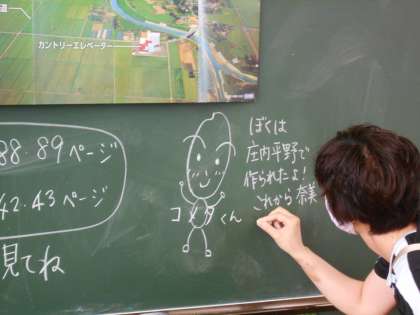 道
カントリーエレベーター
88・89ページ
42・43ページ
見てね
コメタくん
ぼくは
庄内平野で
作られたよ!
これから 奈美